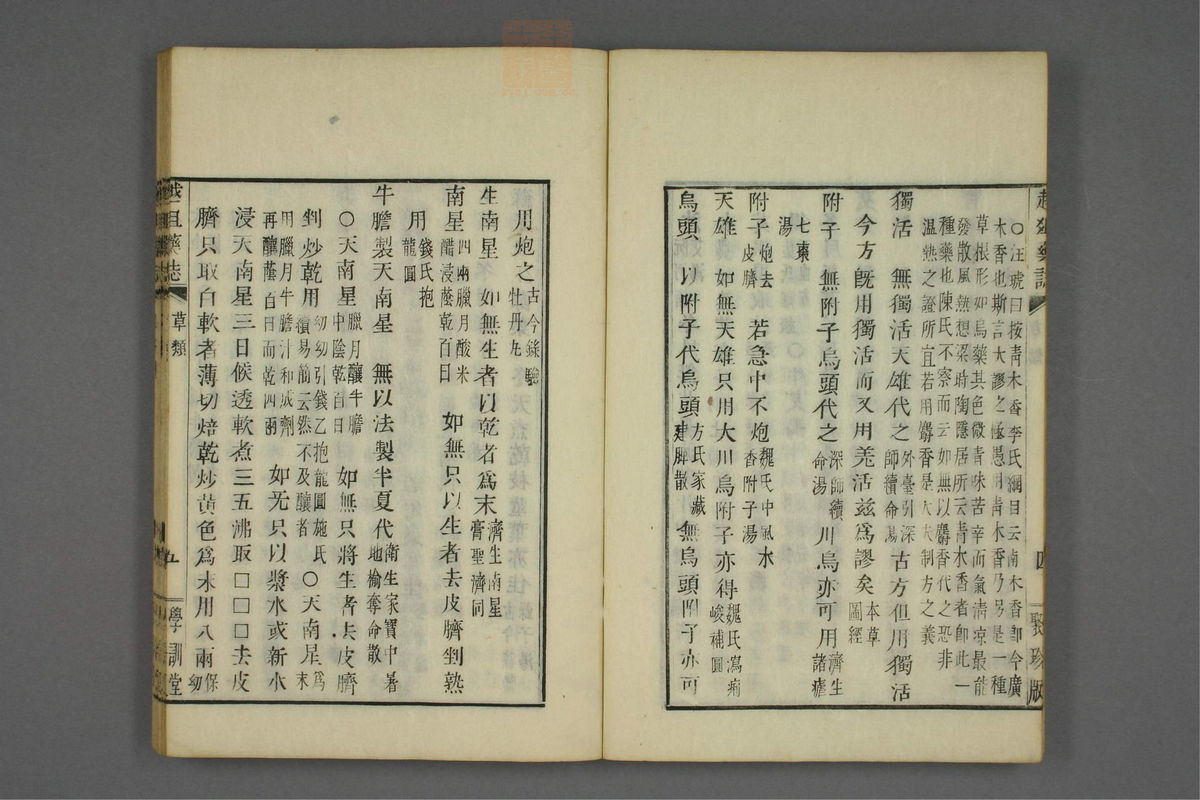 〇汪琥曰按青木香李氏綱目云南木香卽今廣
木香也斯言大謬之極愚用青木香乃另是一種
草根形如烏藥其色微青味苦辛而氣清凉最能
發散風熱想梁時陶隱居所云青木香者卽此一
種藥也陳氏不察而云如無以麝香代之恐非
溫熱之證所宜若用麝香是大失制方之義
獨活　無獨活天雄代之外臺引深師續命湯古方但用獨活
今方旣用獨活而又用羗活兹爲謬矣本草圖經
附子　無附子烏頭代之深師續命湯川烏亦可用濟生諸瘧
七棗湯
附子炮去皮臍　若急中不炮魏氏中風水香附子湯
天雄　如無天雄只用大川烏附子亦得魏氏瀉痢峻補圓
烏頭　以附子代烏頭方氏家藏建脾散無烏頭附子亦可
四
聚珍版
用炮之古今錄驗牡丹丸
生南星　如無生者以乾者爲末濟生南星膏聖濟同
南星四兩臘月酸米醋浸蔭乾百日　如無只以生者去皮臍剉熟
用錢氏抱龍圓
牛膽製天南星　無以法製半夏代衛生家寶中暑地榆奪命散
〇天南星臘月釀牛膽中陰乾百日　如無只將生者去皮臍
剉炒乾用幼幼引錢乙抱龍圓施氏續易簡云然不及釀者〇天南星爲末
用臘月牛膽汁和成劑再釀蔭百日而乾四兩　如无只以漿水或新水
浸天南星三日候透軟煮三五沸取□□□去皮
臍只取白軟者薄切焙乾炒黃色爲末用八兩保幼
藥誌
草類
五
學訓堂